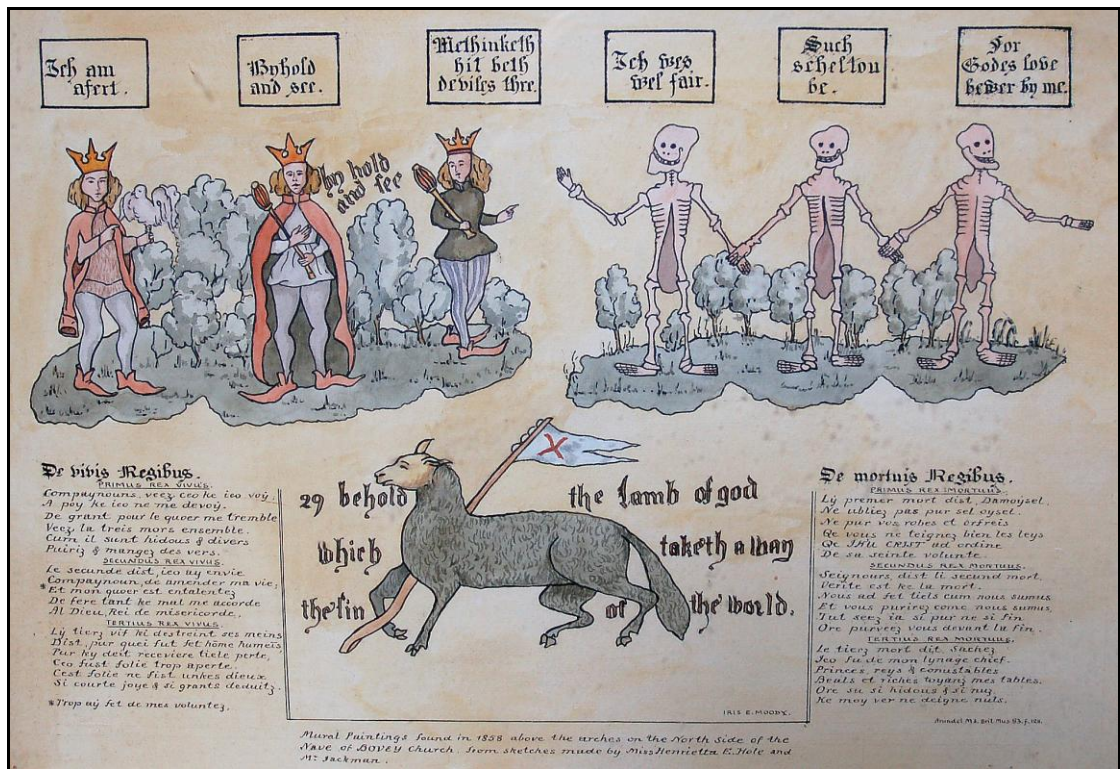 Ich am
afert.
Byhold
and see.
Methinketh
hit beth
deviles thre.
Ich wes
wel fair.
Such
schelton
be.
For
Godes love
bewer by me.
by hold
and see
De vivis Regibus.
PRIMUS REX VIVUS.
Compaynouns, veez ceo ke ieo voy.
A poy ke ieo ne me devoy.
De grant pour le quoer me tremble
Veez la treis mors ensemble.
Cum il sunt hidous & divers
Puiriz & mangez des vers.
SECUNDUS REX VIVUS.
Le secunde dist, ieo ay envie
Compaynoun, de amender ma vie,
*Et mon quoer est entalentez
De fere tant ke mal me accorde
Al Dieu, Rei de misericorde.
TERTIUS REX VIVUS.
Ly tierz vif ki destreint ses meins
Dist, pur quei fut fet hōme humeis
Pur ky deit receviere tiele perte,
Ceo fust folie trop aperte.
Cest folie ne fist unkes dieux
Si courte joye & si grants deduitz.
*Trop ay fet de mes voluntez.
29 behold the Lamb of god
which taketh a way
the sin of the world.
IRIS E. MOODY.
De mortuis Regibus.
PRIMUS REX MORTUUS.
Ly premer mort dist, Damoysel,
Ne ubliez pas pur sel oysel.
Ne pur vos robes et orfreis
Qe vous ne teignez bien les leys
Qe IHU CRIST ad ordine
De sa seinte volunte.
SECUNDUS REX MORTUUS.
Seignours, dist li secund mort,
Verite est ke la mort
Nous ad fet tiels cum nous sumus
Et vous purirez come nous sumus
Tut seez ia si pur ne si fin
Ore purveez vous devant la fin.
TERTIUS REX MORTUUS.
Le tierz mort dit, Sachez
Ieo fu de mon lynage chief.
Princes, reys & conustables
Beals et riches ioyanz mes tables.
Ore su si hidous & si nuz
Ke moy ver ne deigne nuls.
Arundel MS. Brit Mus 83. f. 128.
Mural Paintings found in 1858 above the arches on the North Side of the
Nave of BOVEY Church, from sketches made by Miss Henrietta E. Hole and
Mr Jackman.